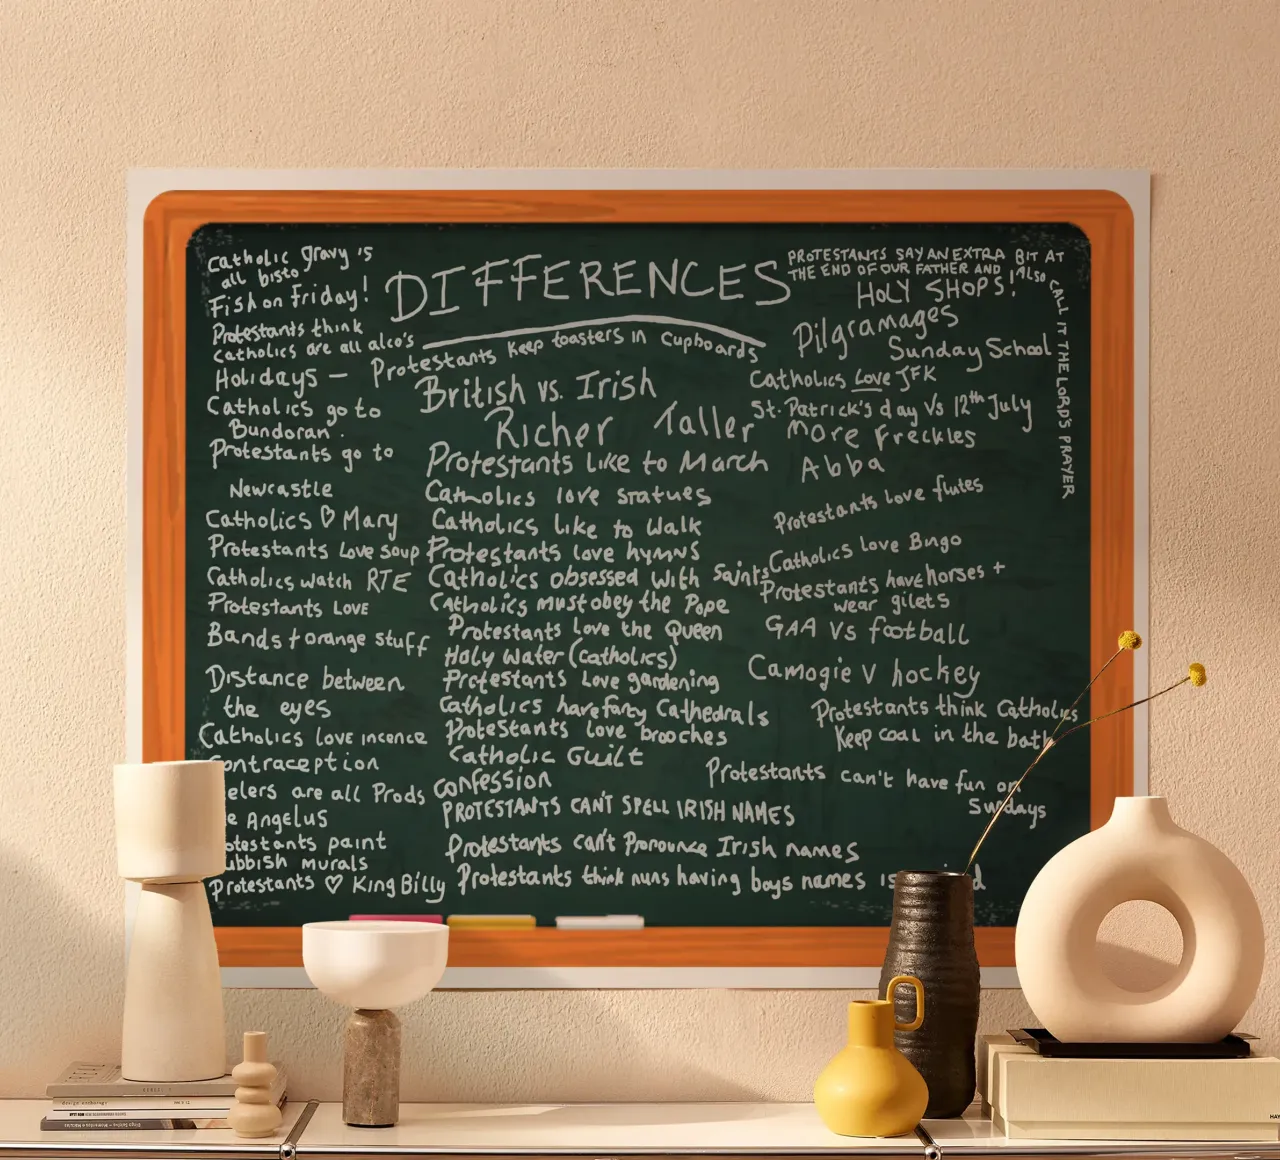 DIFFERENCES
Catholic gravy is
all bisto
Fish on Friday!
Protestants think
Catholics are all alco's
Holidays —
Catholics go to
Bundoran.
Protestants go to
Newcastle
Catholics ♡ Mary
Protestants Love soup
Catholics watch RTE
Protestants LOVE
Bands + orange stuff
Distance between
the eyes
Catholics love incence
Contraception
elers are all Prods
e Angelus
otestants paint
ubbish murals
Protestants ♡ King Billy
Protestants keep toasters in cupboards
British vs. Irish
Richer Taller
Protestants like to March
Catholics love statues
Catholics like to walk
Protestants love hymns
Catholics obsessed with saints
Catholics must obey the Pope
Protestants love the Queen
Holy water (Catholics)
Protestants love gardening
Catholics have fancy Cathedrals
Protestants love brooches
Catholic Guilt
Confession
PROTESTANTS CAN'T SPELL IRISH NAMES
Protestants can't Pronounce Irish names
Protestants think nuns having boys names is
PROTESTANTS SAY AN EXTRA BIT AT
THE END OF OUR FATHER AND
ALSO CALL IT THE LORD'S PRAYER
HOLY SHOPS!
Pilgramages
Sunday School
Catholics Love JFK
St. Patrick's day Vs 12th July
More Freckles
Abba
Protestants love flutes
Catholics love Bingo
Protestants have horses +
wear gilets
GAA Vs football
Camogie V hockey
Protestants think Catholics
Keep coal in the bath
Protestants can't have fun on
Sundays